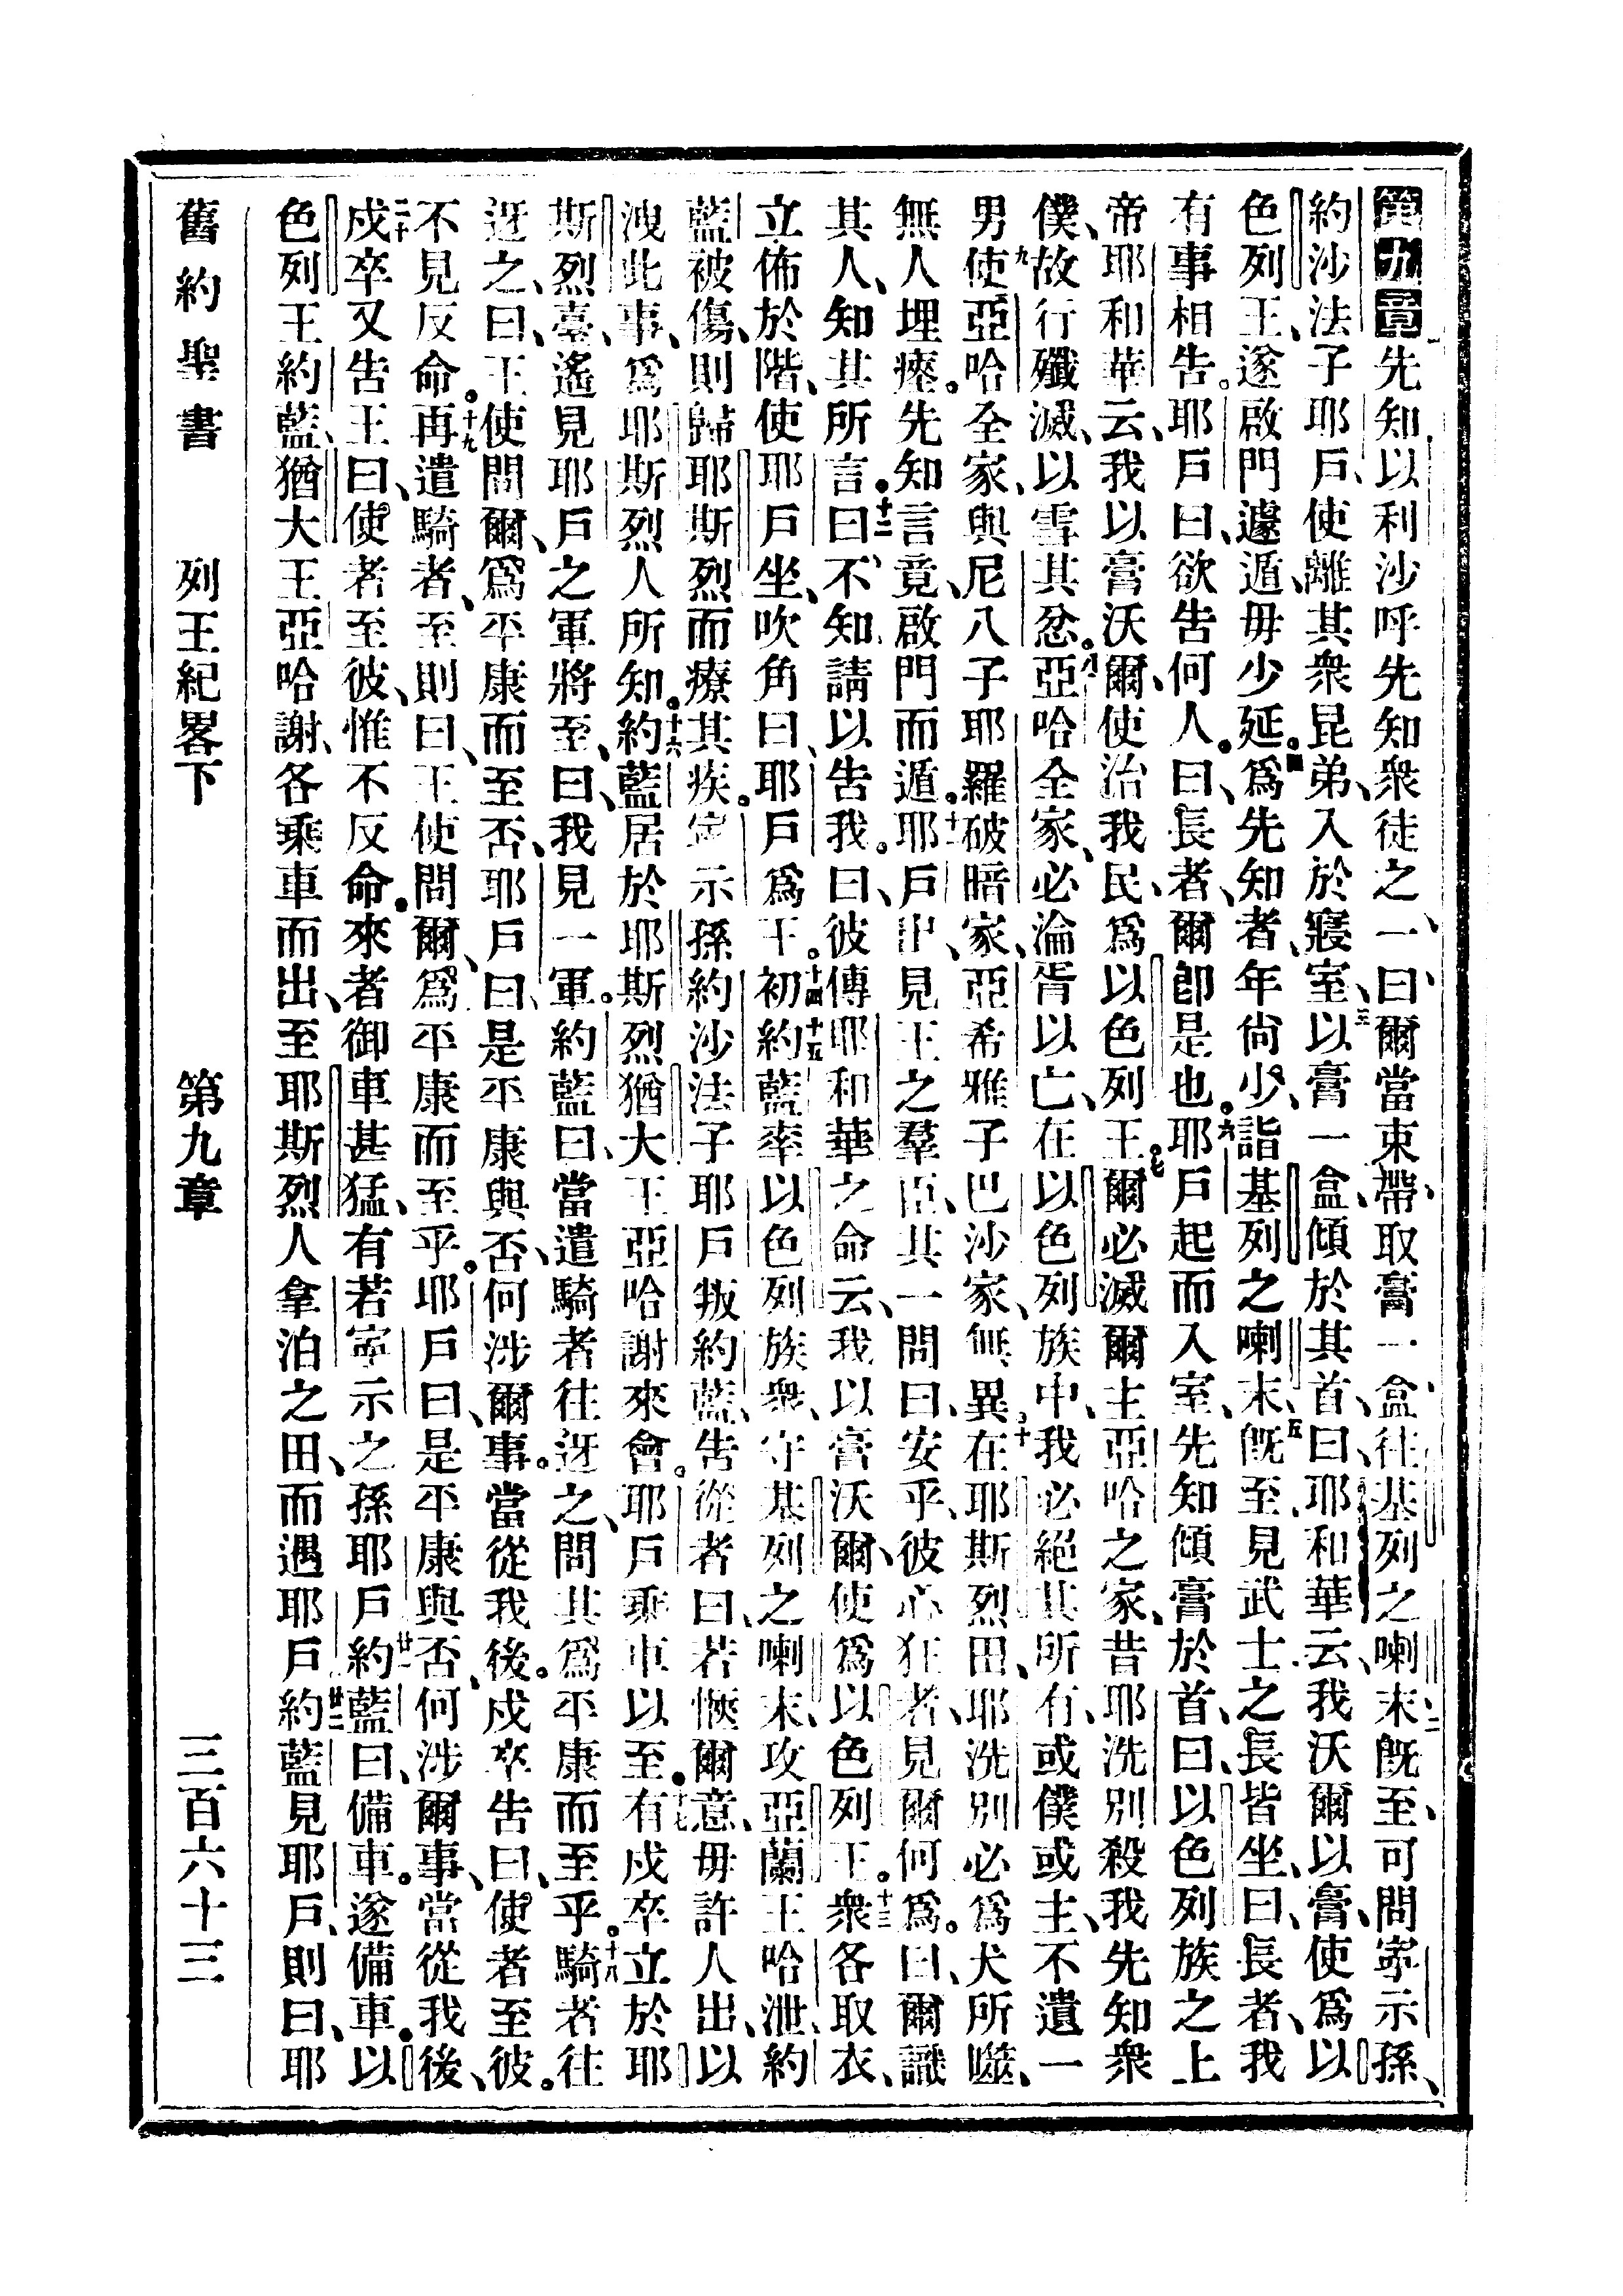 第九章先知以利沙呼先知衆徒之一、曰、爾當束帶、取膏一盒、往基列之喇末、二既至、可問寧示孫、
約沙法子耶戶、使離其衆昆弟、入於寢室、三以膏一盒、傾於其首、曰、耶和華云、我沃爾以膏、使爲以
色列王、遂啟門遽遁、毋少延。四爲先知者、年尙少、詣基列之喇末、五旣至、見武士之長皆坐、曰、長者、我
有事相告。耶戶曰、欲告何人。曰、長者、爾卽是也。六耶戶起而入室、先知傾膏於首、曰、以色列族之上
帝耶和華云、我以膏沃爾、使治我民、爲以色列王。七爾必滅爾主亞哈之家、昔耶洗別殺我先知衆
僕、故行殲滅、以雪其忿。八亞哈全家、必淪胥以亡、在以色列族中、我必絕其所有、或僕或主、不遺一
男、九使亞哈全家、與尼八子耶羅破暗家、亞希雅子巴沙家、無異。十在耶斯烈田、耶洗別必爲犬所噬、
無人埋瘞。先知言竟、啟門而遁。十一耶戶出、見王之羣臣、其一問曰、安乎、彼心狂者、見爾何爲。曰、爾識
其人、知其所言。十二曰、不知、請以告我。曰、彼傳耶和華之命云、我以膏沃爾、使爲以色列王。十三衆各取衣、
立佈於階、使耶戶坐、吹角曰、耶戶爲王。十四十五初約藍率以色列族衆、守基列之喇末、攻亞蘭王哈泄、約
藍被傷、則歸耶斯烈而療其疾。寧示孫約沙法子耶戶叛約藍、告從者曰、若愜爾意、毋許人出、以
洩此事、爲耶斯烈人所知。十六約藍居於耶斯烈、猶大王亞哈謝來會。耶戶乘車以至。十七有戍卒立於耶
斯烈臺、遙見耶戶之軍將至、曰、我見一軍。約藍曰、當遣騎者往迓之、問其爲平康而至乎。十八騎者往
迓之、曰、王使問爾、爲平康而至否、耶戶曰、是平康與否、何涉爾事。當從我後。戍卒告曰、使者至彼。
不見反命。十九再遣騎者、至則曰、王使問爾、爲平康而至乎。耶戶曰、是平康與否、何涉爾事、當從我後、
二十戍卒又告王曰、使者至彼、惟不反命。來者御車甚猛、有若寧示之孫耶戶、廿一約藍曰、備車。遂備車。以
色列王約藍、猶大王亞哈謝、各乘車而出、至耶斯烈人拿泊之田、而遇耶戶、廿二約藍見耶戶、則曰、耶
舊約聖書 列王紀畧下 第九章 三百六十三